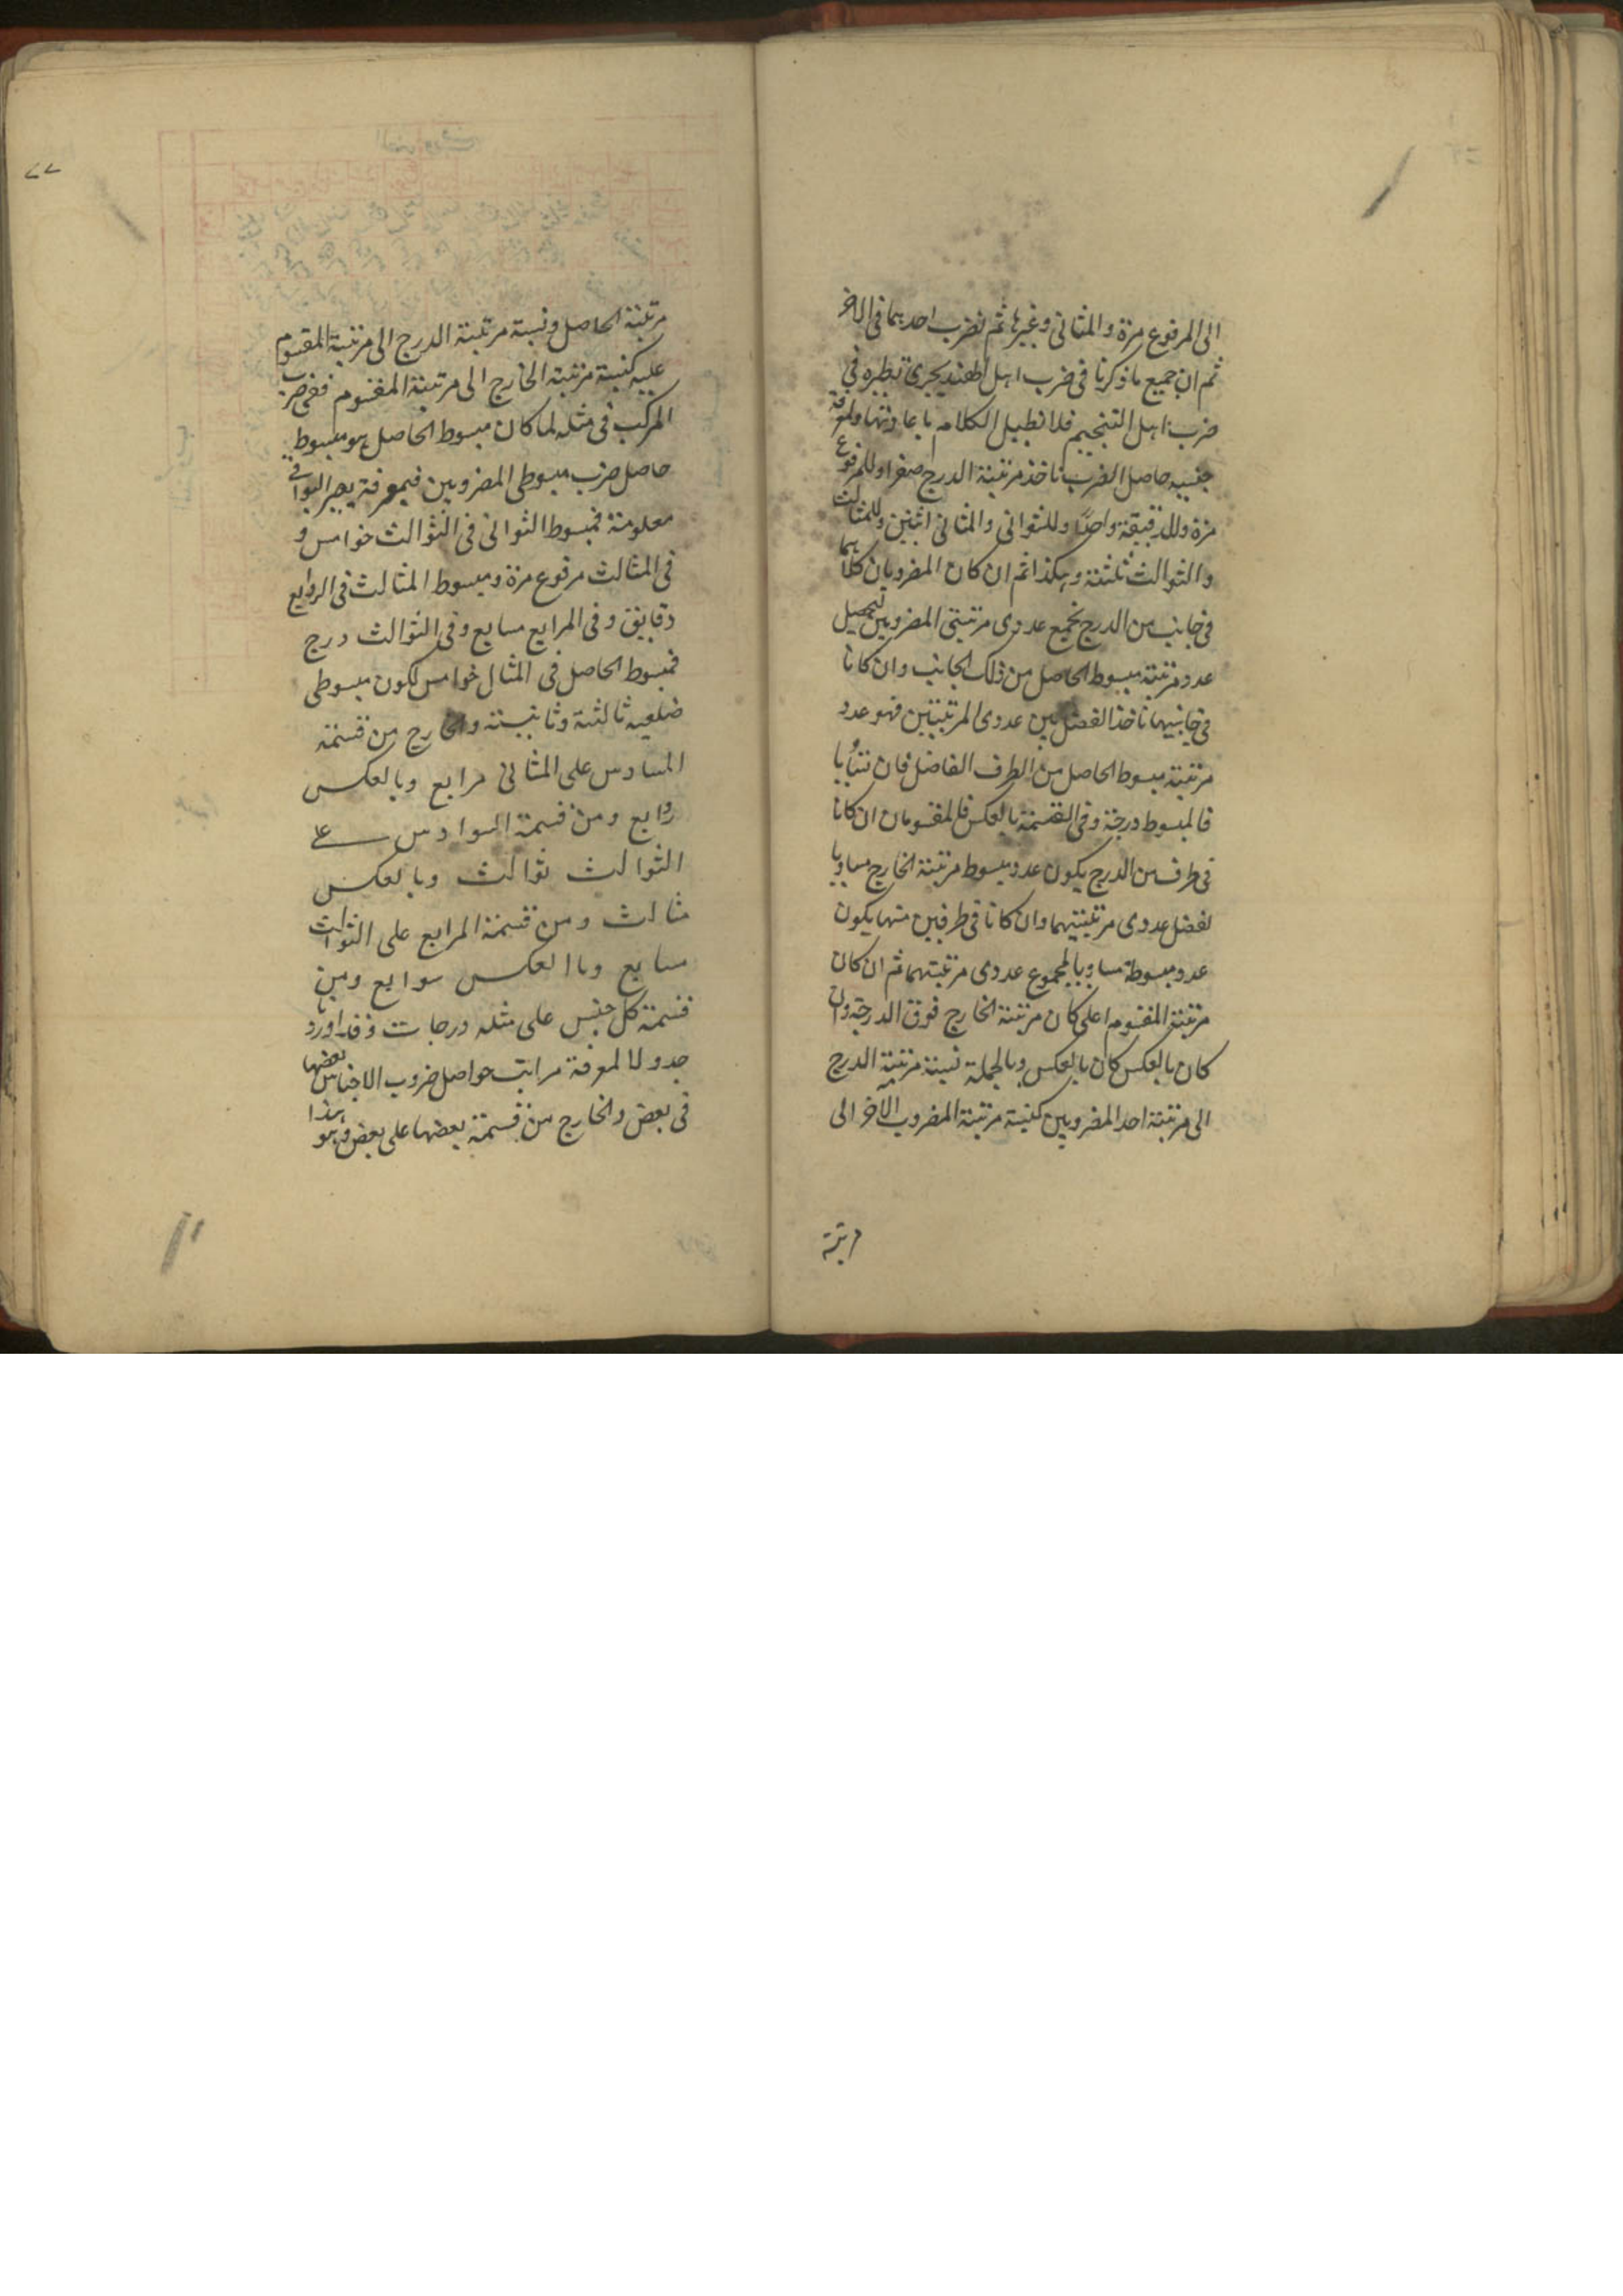 الى المرفوع مرة والمثانى وغيرها ثم نضرب احديهما فى الاخر
ثم ان جميع ما ذكرنا فى ضرب اهل الهند يجرى نظيره فى
ضرب اهل التنجيم فلا نطيل الكلام باعادتها ولمعرفة
جنسيه حاصل الضرب ناخذ مرتبة الدرج صفرا وللمرفوع
مرة وللدقيقة واحدًا وللثوانى والمثانى اثنين وللمثالث
والثوالث ثلثة وهكذا ثم ان كان المضروبان كلاهما
فى جانب من الدرج نجمع عددى مرتبتى المضروبين ليحصل
عدد مرتبة مبسوط الحاصل من ذلك الجانب وان كانا
فى جانبيها ناخذ الفضل بين عددى المرتبتين فهو عدد
مرتبة مبسوط الحاصل من الطرف الفاضل فان تساويا
فالمبسوط درجة وفى القسمة بالعكس فالمقسومان ان كانا
فى طرف من الدرج يكون عدد مبسوط مرتبة الخارج مساويا
لفضل عددى مرتبتيهما وان كانا فى طرفين منها يكون
عدد مبسوطة مساويا لمجموع عددى مرتبتهما ثم ان كان
مرتبة المقسوم اعلى كان مرتبة الخارج فوق الدرجة وان
كان بالعكس كان بالعكس وبالجملة نسبة مرتبة الدرج
الى مرتبة احد المضروبين كنسبة مرتبة المضروب الاخر الى
مرتبة
٧٧
مرتبة الحاصل ونسبة مرتبة الدرج الى مرتبة المقسوم
عليه كنسبة مرتبة الخارج الى مرتبة المقسوم ففى ضرب
المركب فى مثله لما كان مبسوط الحاصل هو مبسوط
حاصل ضرب مبسوطى المضروبين فبمعرفة يصير البواقى
معلومة فمبسوط الثوانى فى الثوالث خوامس و
فى المثالث مرفوع مرة ومبسوط المثالث فى الروابع
دقايق وفى المرابع مسابع وفى الثوالث درج
فمبسوط الحاصل فى المثال خوامس لكون مبسوطى
ضلعيه ثالثة وثانية والخارج من قسمة
المسادس على المثانى مرابع وبالعكس
روابع ومن قسمة السوادس على
الثوالث ثوالث وبالعكس
مثالث ومن قسمة المرابع على الثوالث
مسابع وبا العكس سوابع ومن
قسمة كل جنس على مثله درجات وقد اوردنا
جدولا لمعرفة مراتب حواصل ضروب الاجناس بعضها
فى بعض والخارج من قسمة بعضها على بعض وهو هذا